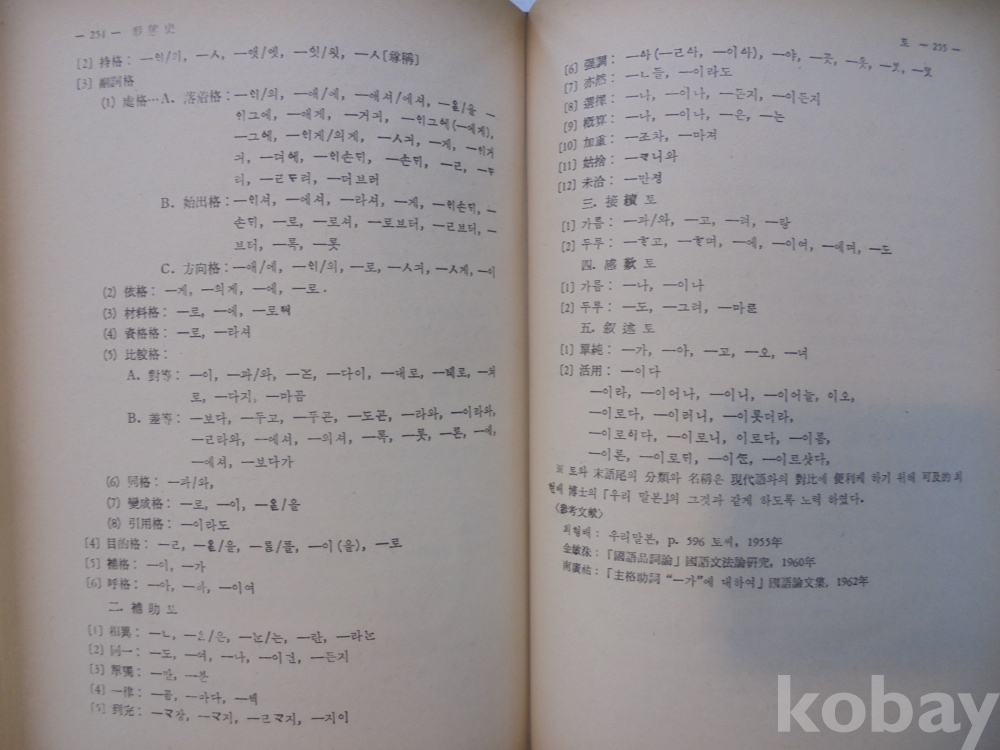 — 254 — 形態史
[2] 持格: —ᄋᆡ/의, —ㅅ, —앳/엣, —잇/읫, —ㅅ[尊稱]
[3] 副詞格
(1) 處格…A. 落着格: —ᄋᆡ/의, —애/에, —애셔/에셔, —ᄋᆞᆯ/을
ᄋᆡ그에, —애게, —거긔, —ᄋᆡ그에(—에게),
—그에, —ᄋᆡ게/의게, —ㅅ긔, —게,
긔, —ᄋᆡ손ᄃᆡ, —손ᄃᆡ, —ㄹ,
려, —ㄹᄃᆞ려, —더브러
B. 始出格: —ᄋᆡ셔, —에셔, —라셔, —게, —ᄋᆡ손ᄃᆡ, —
손ᄃᆡ, —로, —로셔, —로브터, —ㄹ브터, —
브터, —록, —롯
C. 方向格: —애/에, —ᄋᆡ/의, —로, —ㅅ긔, —ㅅ게, —이
(2) 依格: —게, —의게, —에, —로.
(3) 材料格: —로, —에, —로ᄡᅥ
(4) 資格格: —로, —라셔
(5) 比較格:
A. 對等: —이, —과/와, —다이, —대로, —톄로,
로, —다지, —마곰
B. 差等: —보다, —두고, —두곤, —도곤, —라와, —이라와,
—ㄹ라와, —에셔, —의셔, —록, —롯, —론, —에,
—에셔, —보다가
(6) 同格: —과/와,
(7) 變成格: —로, —이, —ᄋᆞᆯ/을
(8) 引用格: —이라도
[4] 目的格: —ㄹ, —ᄋᆞᆯ/을, —ᄅᆞᆯ/를, —이(을), —로
[5] 補格: —이, —가
[6] 呼格: —아, —하, —이여
二. 補助토
[1] 相異: —ㄴ, —ᄋᆞᆫ/은, —ᄂᆞᆫ/는, —란, —라ᄂᆞᆫ
[2] 同一: —도, —여, —나, —이건, —든지
[3] 單獨: —만, —뿐
[4] 一律: —곰, —마다, —씩
[5] 到充: —ᄭᆞ장, —ᄭᆞ지, —ㄹᄭᆞ지, —지이
토 — 255 —
[6] 强調: —ᅀᅡ(—ㄹᅀᅡ, —이ᅀᅡ), —야, —곳, —옷, —봇, —붓
[7] 亦然: —ㄴ들, —이라도
[8] 選擇: —나, —이나, —든지, —이든지
[9] 槪算: —나, —이나, —은, —는
[10] 加重: —조차, —마져
[11] 姑捨: —ᄏᆞ니와
[12] 未洽: —만졍
三. 接續토
[1] 가름: —과/와, —고, —려, —랑
[2] 두루: —ᄒᆞ고, —ᄒᆞ며, —에, —이여, —에며, —도
四. 感歎토
[1] 가름: —나, —이나
[2] 두루: —도, —그려, —마ᄅᆞᆫ
五. 叙述토
[1] 單純: —가, —아, —고, —오, —녀
[2] 活用: —이다
—이라, —이어나, —이니, —이어늘, 이오,
—이로다, —이러니, —이롯더라,
—이로히다, —이로니, 이로다, —이름,
—이론, —이로ᄃᆡ, —이르샷다,
토와 末語尾의 分類와 名稱은 現代語와의 對比에 便利케 하기 위해 可及的 최
현배 博士의「우리 말본」의 그것과 같게 하도록 노력 하였다.
〈參考文献〉
최현배: 우리말본, p. 596 토씨, 1955年
金敏洙:「國語品詞論」國語文法論硏究, 1960年
南廣祐:「主格助詞 “—가”에 대하여」國語論文集, 1962年
kobay